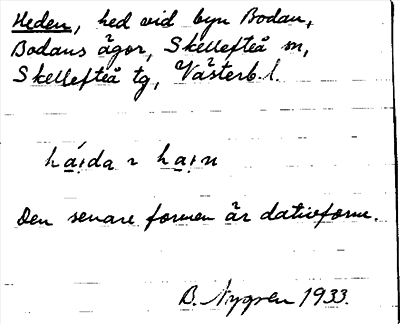 Heden, hed vid byn Bodan,
Bodans ägor, Skellefteå sn,
Skellefteå tg, Västerb.l.
háịda ~ haịn
Den senare formen är dativform.
B. Nygren 1933.